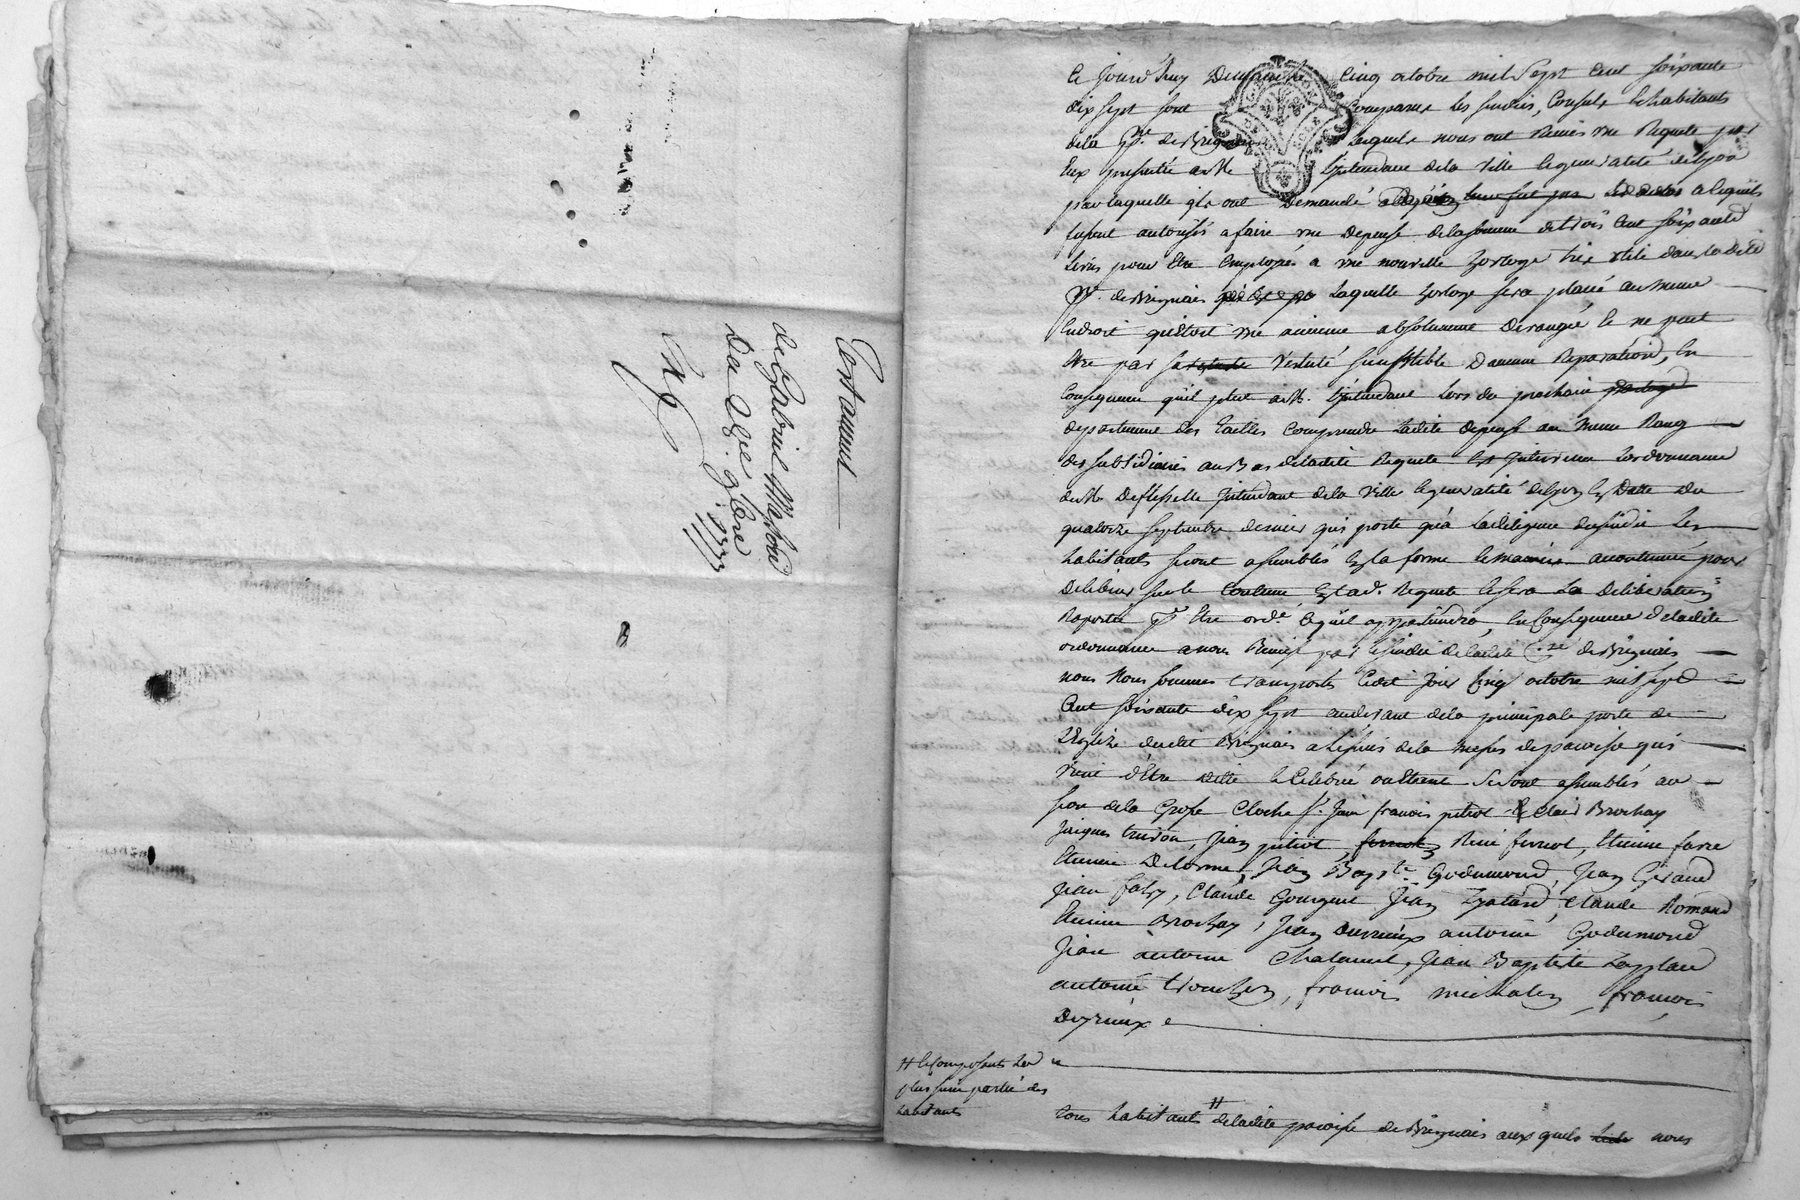 Testament
de Gabriel
Le Jourd'huy Dimanche Cinq octobre mil Sept Cent soixante
dix sept sont Comparus les sindic, Consuls & habitants
dela psse. de Brignais lesquels nous ont Remis une Requete par
Eux presenté a Mr L'jntendant dela Ville & generalité de Lyon
par laquelle ils ont Demandé a lequils
fussent autorisés a faire une Depense dela somme de trois Cent soixante
Livres pour Etre Employée a une nouvelle horloge tres utile dans la dite
psse. de Brignais laquelle horloge sera placée au meme
Endroit qu'Etoit une ancienne absolument derangée & ne peut
Etre par sa Vetusté susceptible D'aucune Reparation, En
Consequence qu'il plut a Mr. L'jntendant Lors du prochain
departement des Tailles Comprendre Ladite depense au meme Rang
des subsidiaires au Bas de ladite Requete Est jntervenu Lordonnance
de Mr Deflesselle jntendant dela Ville & generalité de Lyon En Datte du
quatorze septembre dernier qui porte qu'a La diligence du sindic Les
habitants seront assemblés En la forme & maniere accoutumée pour
Deliberer sur le Contenu En lad. Requete & sera La Deliberation
Raportée pr Etre ordé. Ce qu'il appartiendra, En Consequence de ladite
ordonnance a nous Remise par le sindic de ladite de Brignais
nous Nous sommes transportés Cedit jour Cinq octobre mil sept
Cent soixante dix sept audevant dela principale porte de
L'Eglize dudit Brignais a L'issüe dela messe de paroisse qui
vient d'Etre ditte & Celebrée ou Etant se sont assemblés au
son dela Grosse Cloche sr. Jean francois pitiot & Clair Brochay
Jacques , Jean pitiot, René ferreol, Etienne favre
Etienne Delorme, Jean Bapte. Godemond, Jean Geraud
Jean , Claude Jean , Claude Romand
Etienne Brochay, Jean Durieux antoine Godemond
Jean antoine Chalamel, Jean Baptiste
antoine , francois , francois
Deyrieux
# & Composants La
plus saine partie des
habitants
tous habitants # de ladite paroisse de Brignais aux quels nous